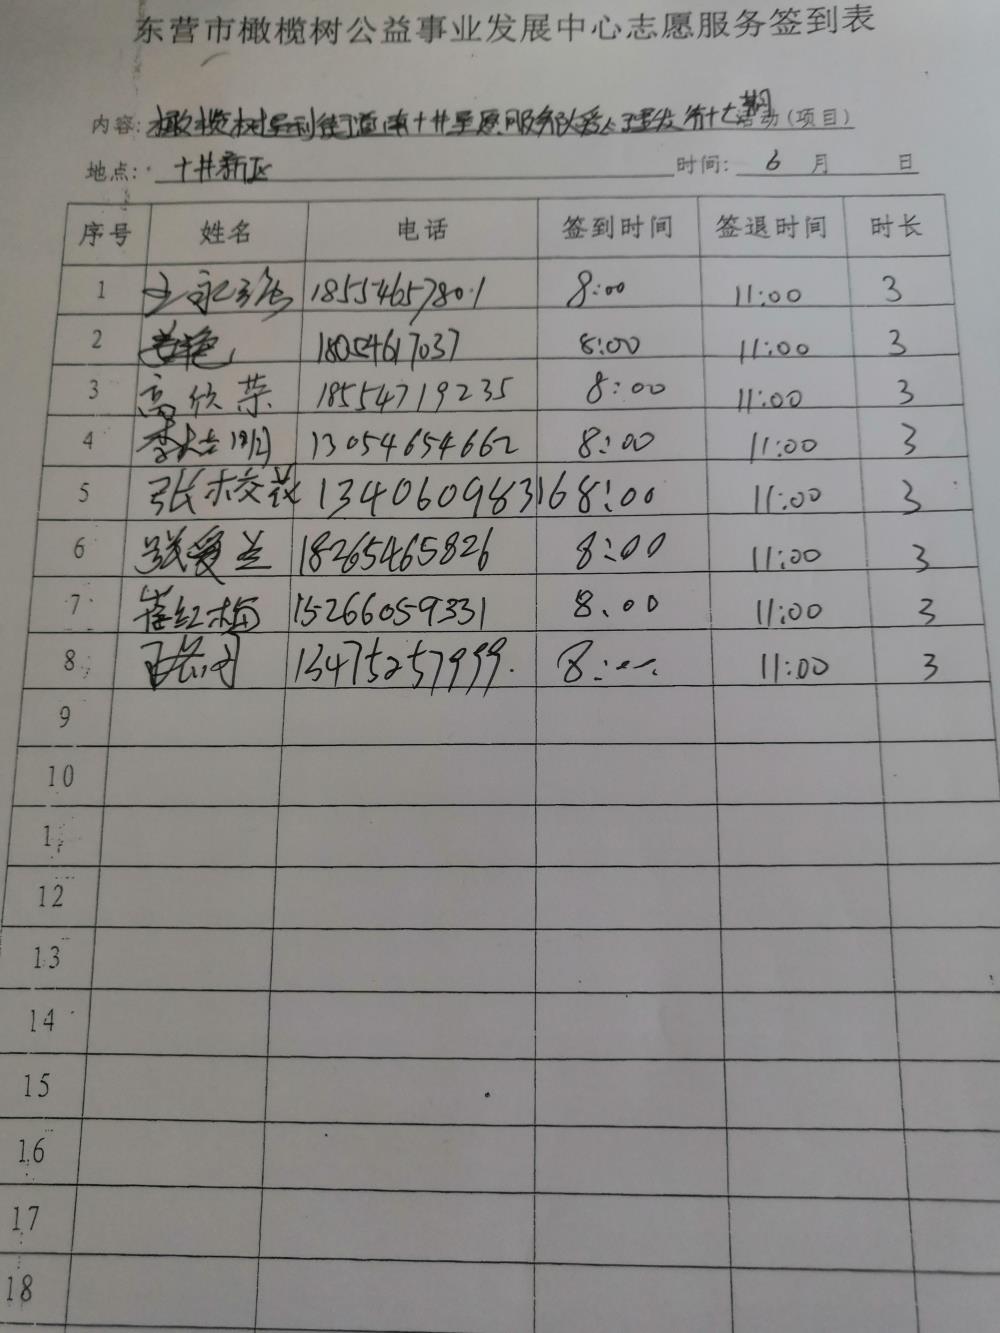 东营市橄榄树公益事业发展中心志愿服务签到表
内容: 橄榄树垦利街道南十井星愿服务队爱心理发第十七期活动(项目)
地点: 十井新区 时间: 6 月 日
序号 姓名 电话 签到时间 签退时间 时长
1 王永 18554657801 8:00 11:00 3
2 18054617037 8:00 11:00 3
3 高欣荣 18554719235 8:00 11:00 3
4 李 13054654662 8:00 11:00 3
5 张校花 13406098316 8:00 11:00 3
6 张爱兰 18265465826 8:00 11:00 3
7 崔红梅 15266059331 8:00 11:00 3
8 13475257999 8:00 11:00 3
9
10
1
12
13
14
15
16
17
18